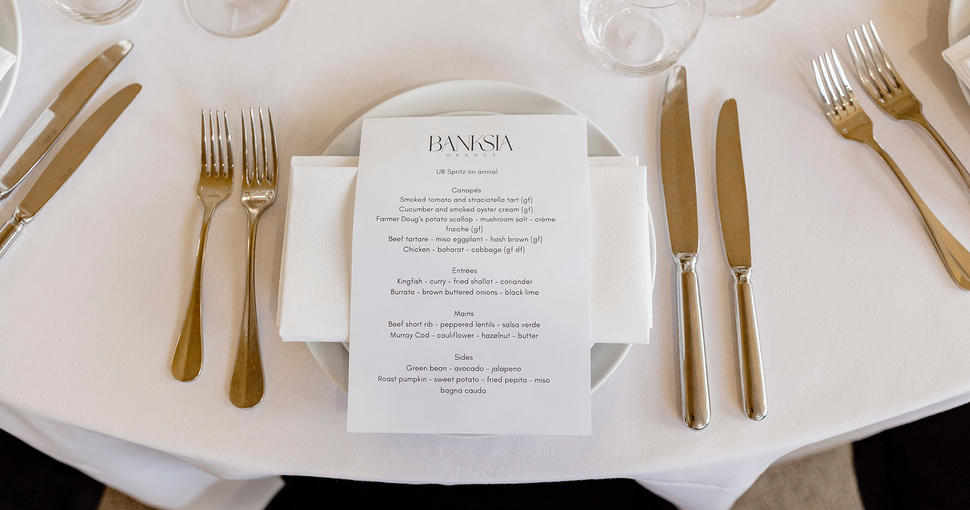 BANKSIA
ORANGE
UB Spritz on arrival
Canapés
Smoked tomato and straciatella tart (gf)
Cucumber and smoked oyster cream (gf)
Farmer Doug's potato scallop - mushroom salt - crème
fraiche (gf)
Beef tartare - miso eggplant - hash brown (gf)
Chicken - baharat - cabbage (gf df)
Entrées
Kingfish - curry - fried shallot - coriander
Burrata - brown buttered onions - black lime
Mains
Beef short rib - peppered lentils - salsa verde
Murray Cod - cauliflower - hazelnut - butter
Sides
Green bean - avocado - jalapeno
Roast pumpkin - sweet potato - fried pepita - miso
bagna cauda